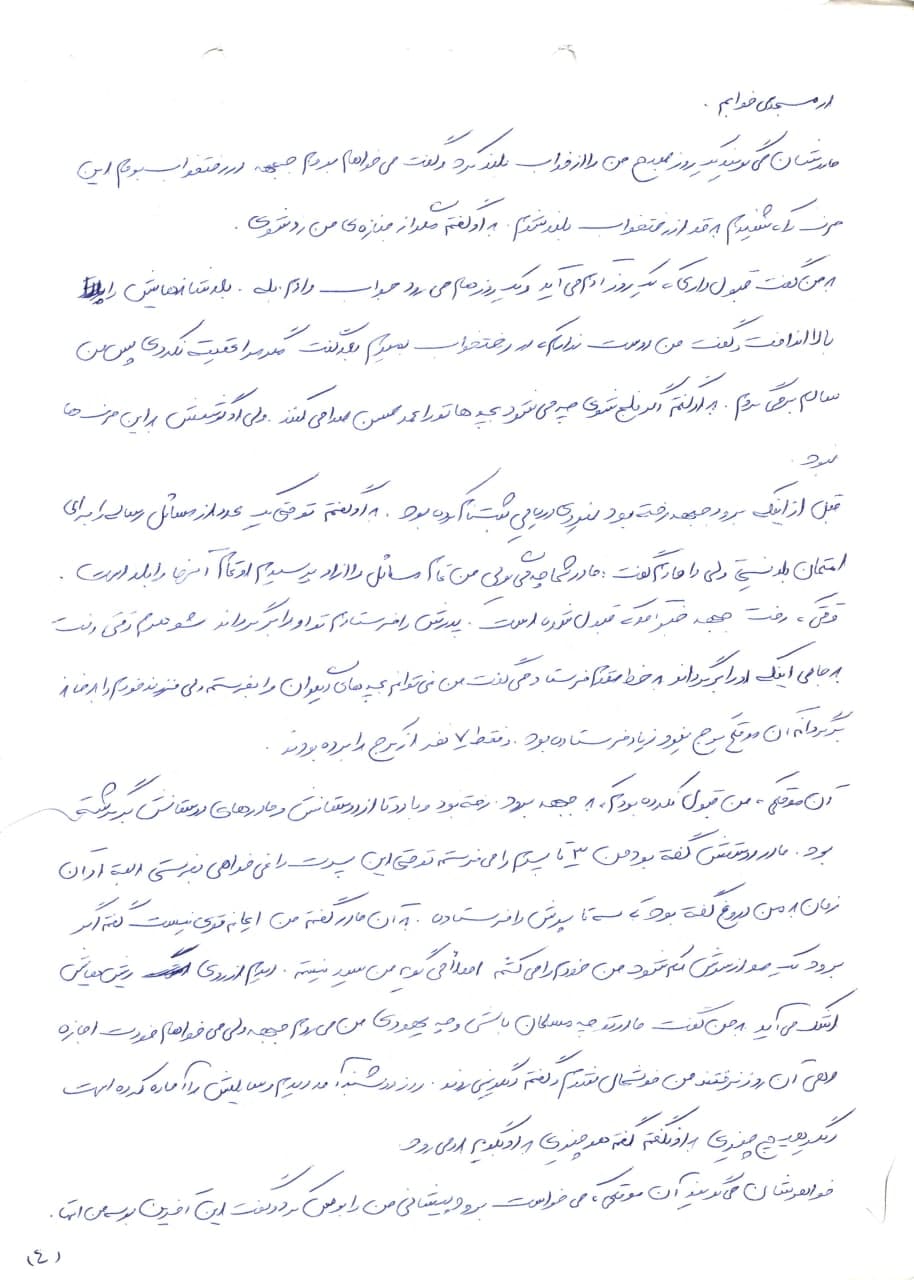 از مسجدی خوابم .
مادرشان می گویند یک روز صبح من را از خواب بلند کرد و گفت می خواهم بروم جبهه در رختخواب بودم این
حرف را که شنیدم از رختخواب بلند شدم . به او گفتم باید از جنازه ی من رد شوی .
به من گفت قبول داری که یک روز آدم می آید و یک روز هم می رود جواب دادم بله . شانه هایش را
بالا انداخت و گفت من دوست ندارم که در رختخواب بمیرم بعد گفت مگر موافقت نکردی پس من
سالم برمی گردم . به او گفتم اگر فلج شوی چه می شود بچه ها تو را صدا می کنند . ولی او گوشش به این حرف ها
نبود .
قبل از اینکه برود جبهه رفته بود نیروی دریایی ثبت نام کرده بود . به او گفتم تو حتی یک عدد از مسائل را برای
امتحان بلد نیستی ولی گفت : مادر شما چه می گویی من تمام مسائل را از او پرسیدم او تمام آنها را بلد است .
وقتی که رفت جبهه خبر آمد که قبول شده است . پدرش را فرستادم تا او را برگرداند شوهرم وقتی رفت
به جای اینکه او را برگرداند به خط مقدم فرستاد می گفت من نمی توانم بچه های دیگران را بفرستم ولی فرزند خودم را به خانه
برگردانم آن موقع کرج نیرو زیاد فرستاده بود . فقط ۷ نفر از کرج را برده بودند .
آن موقعی که من قبول نکرده بودم که به جبهه برود . رفته بود و با دو تا از دوستانش و مادرهای دوستانش برگشته
بود . مادر دوستش گفته بود من ۳ تا پسرم را می فرستم تو حتی این پسرت را نمی خواهی بفرستی البته آن
زمان به من دروغ گفته بود که سه تا پسرش را فرستاده . به آن مادر گفتم من ایمانم قوی نیست گفتم اگر
برود یک مو از سرش کم شود من خودم را می کشم اصلاً می گویم من مریضم . دیدم از روی ریش هایش
اشک می آید به من گفت مادر تو چه مسلمان باشی و چه یهودی من می روم جبهه ولی می خواهم خودت اجازه
دهی آن روز نرفتند من خوشحال شدم و گفتم دیگر نمی روند . روز دوشنبه آمد دیدم وسایلش را آماده کرده است
دیگر هیچ چیزی به او نگفتم گفتم هر چیزی به او بگویم او می رود .
خواهرشان می گویند آن موقعی که می خواست برود پیشانی من را بوس کرد و گفت این آخرین بوسه من است .
(٤)